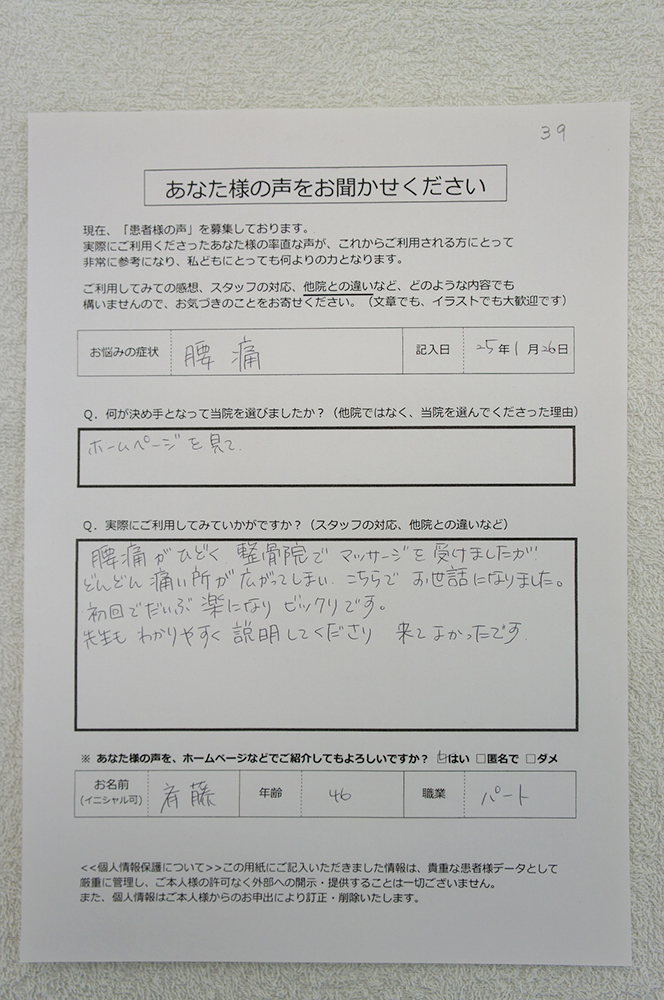 39
あなた様の声をお聞かせください
現在、「患者様の声」を募集しております。
実際にご利用くださったあなた様の率直な声が、これからご利用される方にとって
非常に参考になり、私どもにとっても何よりの力となります。
ご利用してみての感想、スタッフの対応、他院との違いなど、どのような内容でも
構いませんので、お気づきのことをお寄せください。（文章でも、イラストでも大歓迎です）
お悩みの症状 腰痛 記入日 25年1月26日
Q．何が決め手となって当院を選びましたか？（他院ではなく、当院を選んでくださった理由）
ホームページを見て.
Q．実際にご利用してみていかがですか？（スタッフの対応、他院との違いなど）
腰痛がひどく 整骨院で マッサージを受けましたが
どんどん痛い所が広がってしまい. こちらで お世話になりました。
初回でだいぶ楽になり ビックリです。
先生も わかりやすく 説明してくださり 来てよかったです.
※ あなた様の声を、ホームページなどでご紹介してもよろしいですか？ ☑はい □匿名で □ダメ
お名前 斉藤 年齢 46 職業 パート
(イニシャル可)
<<個人情報保護について>>この用紙にご記入いただきました情報は、貴重な患者様データとして
厳重に管理し、ご本人様の許可なく外部への開示・提供することは一切ございません。
また、個人情報はご本人様からのお申出により訂正・削除いたします。